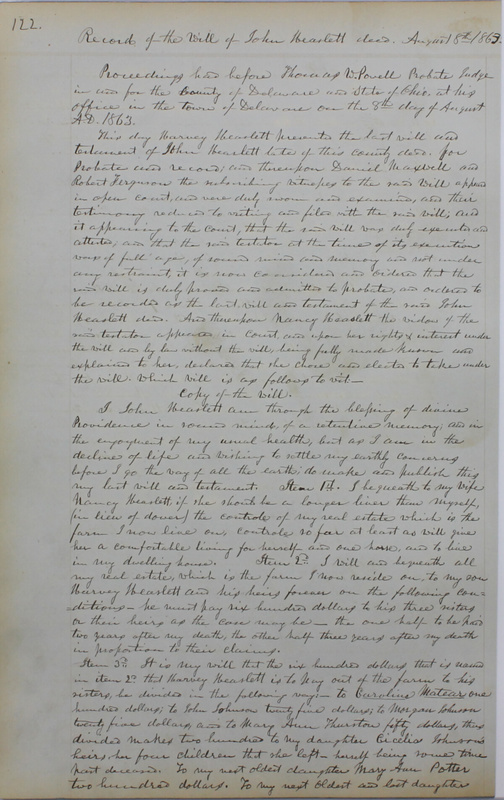 122.
Record of the Will of John Heaslett decd. August 8th 1863.
Proceedings had before Thomas W. Powell Probate Judge
in and for the County of Delaware and State of Ohio at his
office in the town of Delaware on the 8th day of August
A.D. 1863.
This day Harvey Heaslett presents the last will and
testament of John Heaslett late of this county, decd. for
Probate and record; and thereupon Daniel Maxwell and
Robert Ferguson the subscribing witnesses to the said Will appear
in open Court, and were duly sworn and examined, and their
testimony reduced to writing and filed with the said will; and
it appearing to the Court, that the said will was duly executed and
attested, and that the said testator at the time of its execution
was of full age, of sound mind and memory and not under
any restraint, it is now considered and ordered that the
said will is duly proved and admitted to probate, and ordered to
be recorded as the last will and testament of the said John
Heaslett decd. And thereupon Nancy Heaslett the widow of the
said testator appeared in Court, and upon her rights & interest under
the will and by law without the will, being fully made known and
explained to her, declared that she chose and elected to take under
the will. Which will is as follows to wit—
Copy of the Will.
I. John Heaslett am through the blessing of divine
Providence in sound mind, of a retentive memory, and in
the enjoyment of my usual health, but as I am in the
decline of life and wishing to settle my earthly concerns
before I go the way of all the earth do make and publish this
my last will and testament. Item 1st. I bequeath to my Wife
Nancy Heaslett, if she should be a longer liver than myself,
(in lieu of dower) the controle of my real estate which is the
farm I now live on, controle so far at least as will give
her a comfortable living for herself and one horse, and to live
in my dwelling house. Item 2d. I will and bequeath all
my real estate, which is the farm I now reside on, to my son
Harvey Heaslett and his heirs forever on the following con-
ditions— he must pay six hundred dollars to his three sisters
or their heirs as the case may be— the one half to be paid
two years after my death, the other half three years after my death
in proportion to their claims.
Item 3d. It is my will that the six hundred dollars that is named
in item 2d that Harvey Heaslett is to pay out of the farm to his
sisters, be divided in the following way;— to Caroline Matear one
hundred dollars; to John Johnson twenty five dollars; to Morgan Johnson
twenty five dollars, and to Mary Ann Thurston fifty dollars, thus
divided makes two hundred to my daughter Cicelia Johnson's
heirs, her four children that she left— herself being some time
past deceased. To my next oldest daughter Mary Ann Potter
two hundred dollars. To my next oldest and last daughter